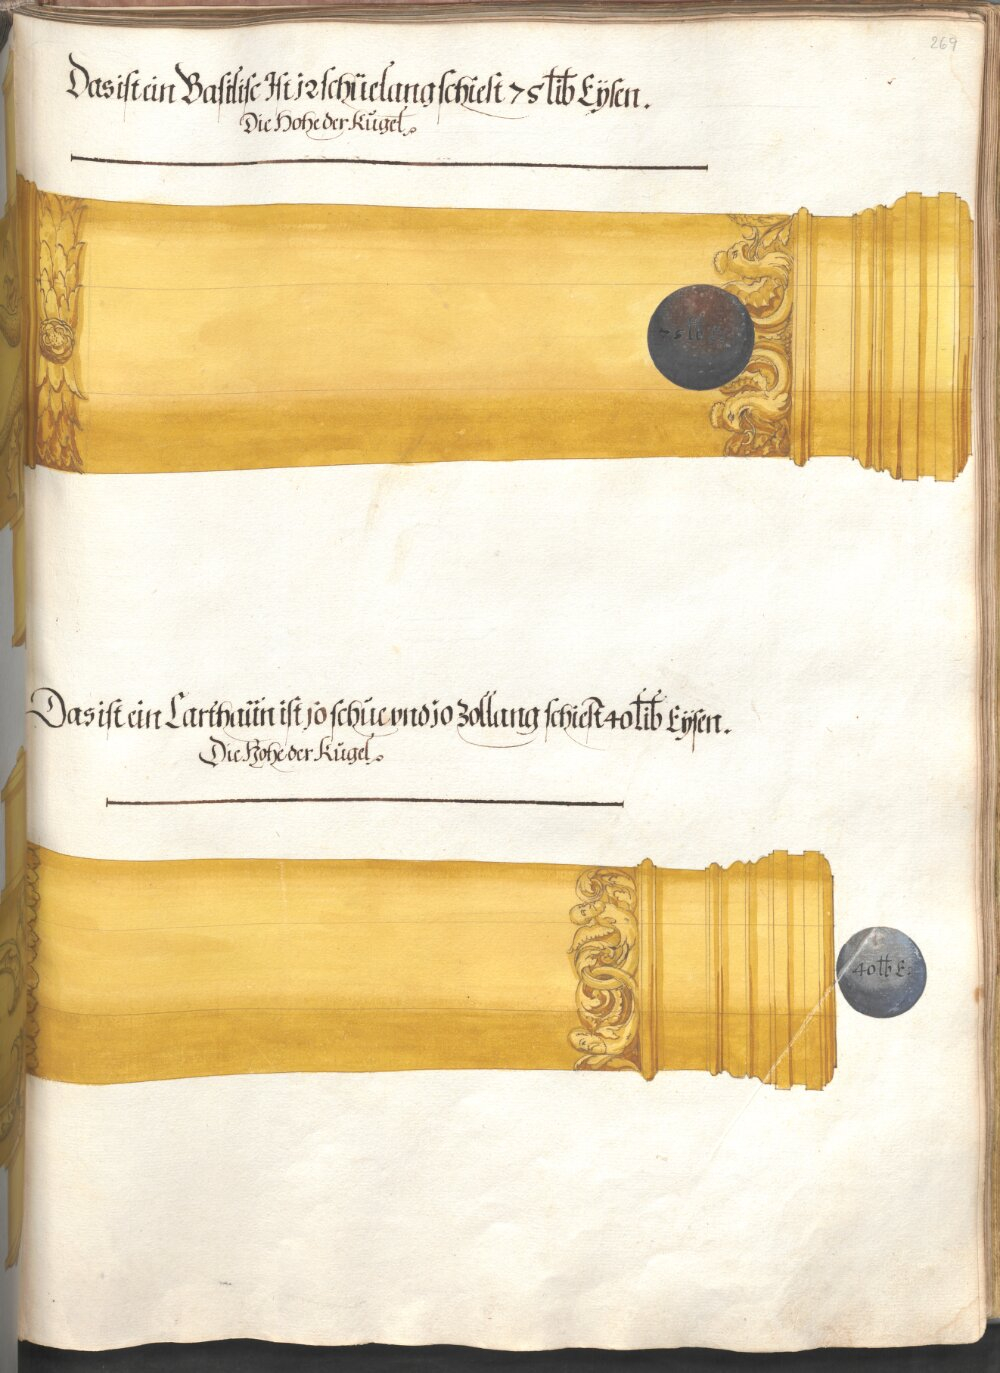 269
Das ist ein Basilisc Ist 12 schue lang schiest 75 lib Eysen.
Die Hohe der Kugel.
75 lb E
Das ist ein Carthaün ist 10 schue vnd 10 Zoll lang schiest 40 lib Eysen.
Die Hohe der Kugel.
40 lb E: